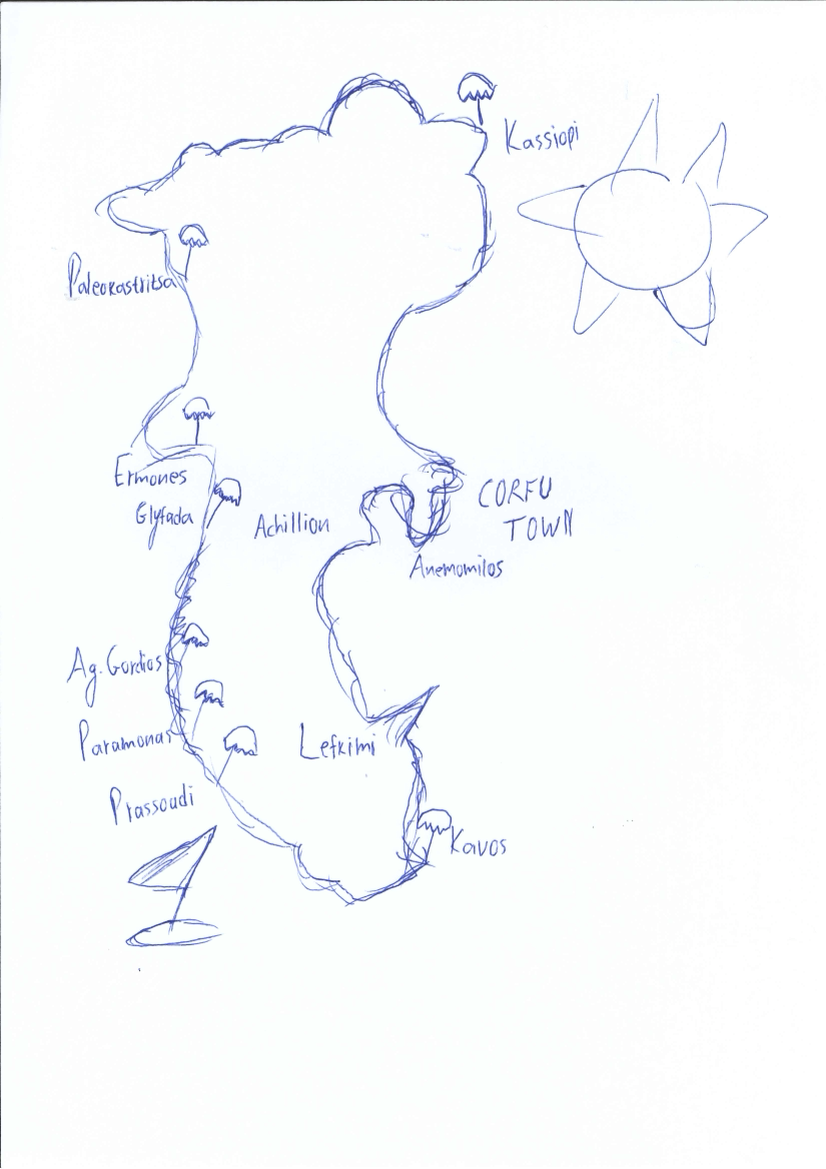 Kassiopi
Paleokastritsa
Ermones
Glyfada
Achillion
CORFU
TOWN
Anemomilos
Ag. Gordios
Paramonas
Lefkimi
Prassoudi
Kavos